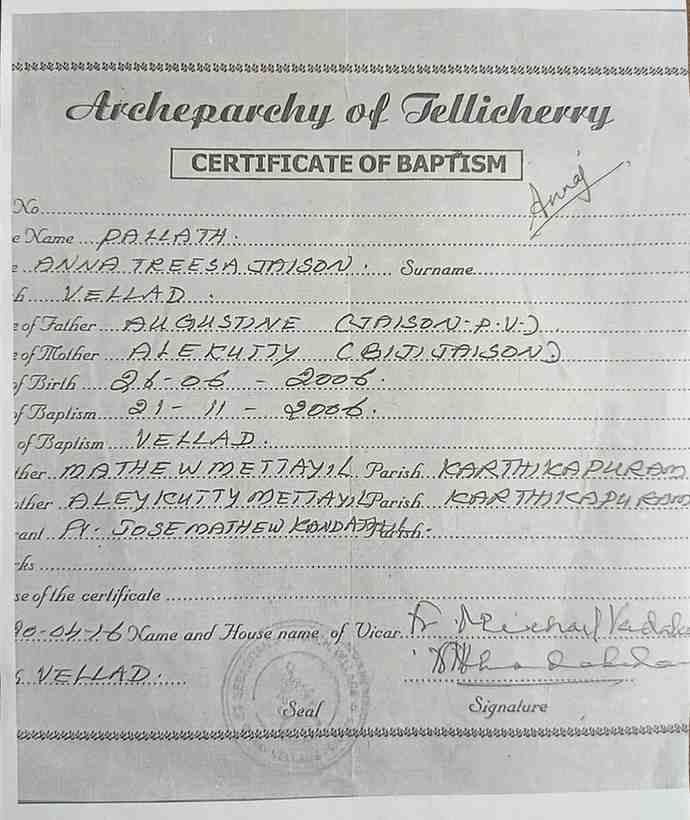 Archeparchy of Tellicherry
CERTIFICATE OF BAPTISM
No
e Name PALLATH.
e ANNA TREESA JAISON. Surname
h VELLAD.
e of Father AUGUSTINE (JAISON-P.V-)
e of Mother ALEKUTTY (BIJI JAISON)
of Birth 26-06-2006.
of Baptism 21-11-2006.
of Baptism VELLAD.
ther MATHEW METTAYIL Parish KARTHIKAPURAM
other ALEYKUTTY METTAYIL Parish KARTHIKAPURAM
ant Fr. JOSE MATHEW KANDATHIL Parish
ks
se of the certificate
20-04-16 Name and House name of Vicar Fr. Michael
VELLAD.
Seal Signature